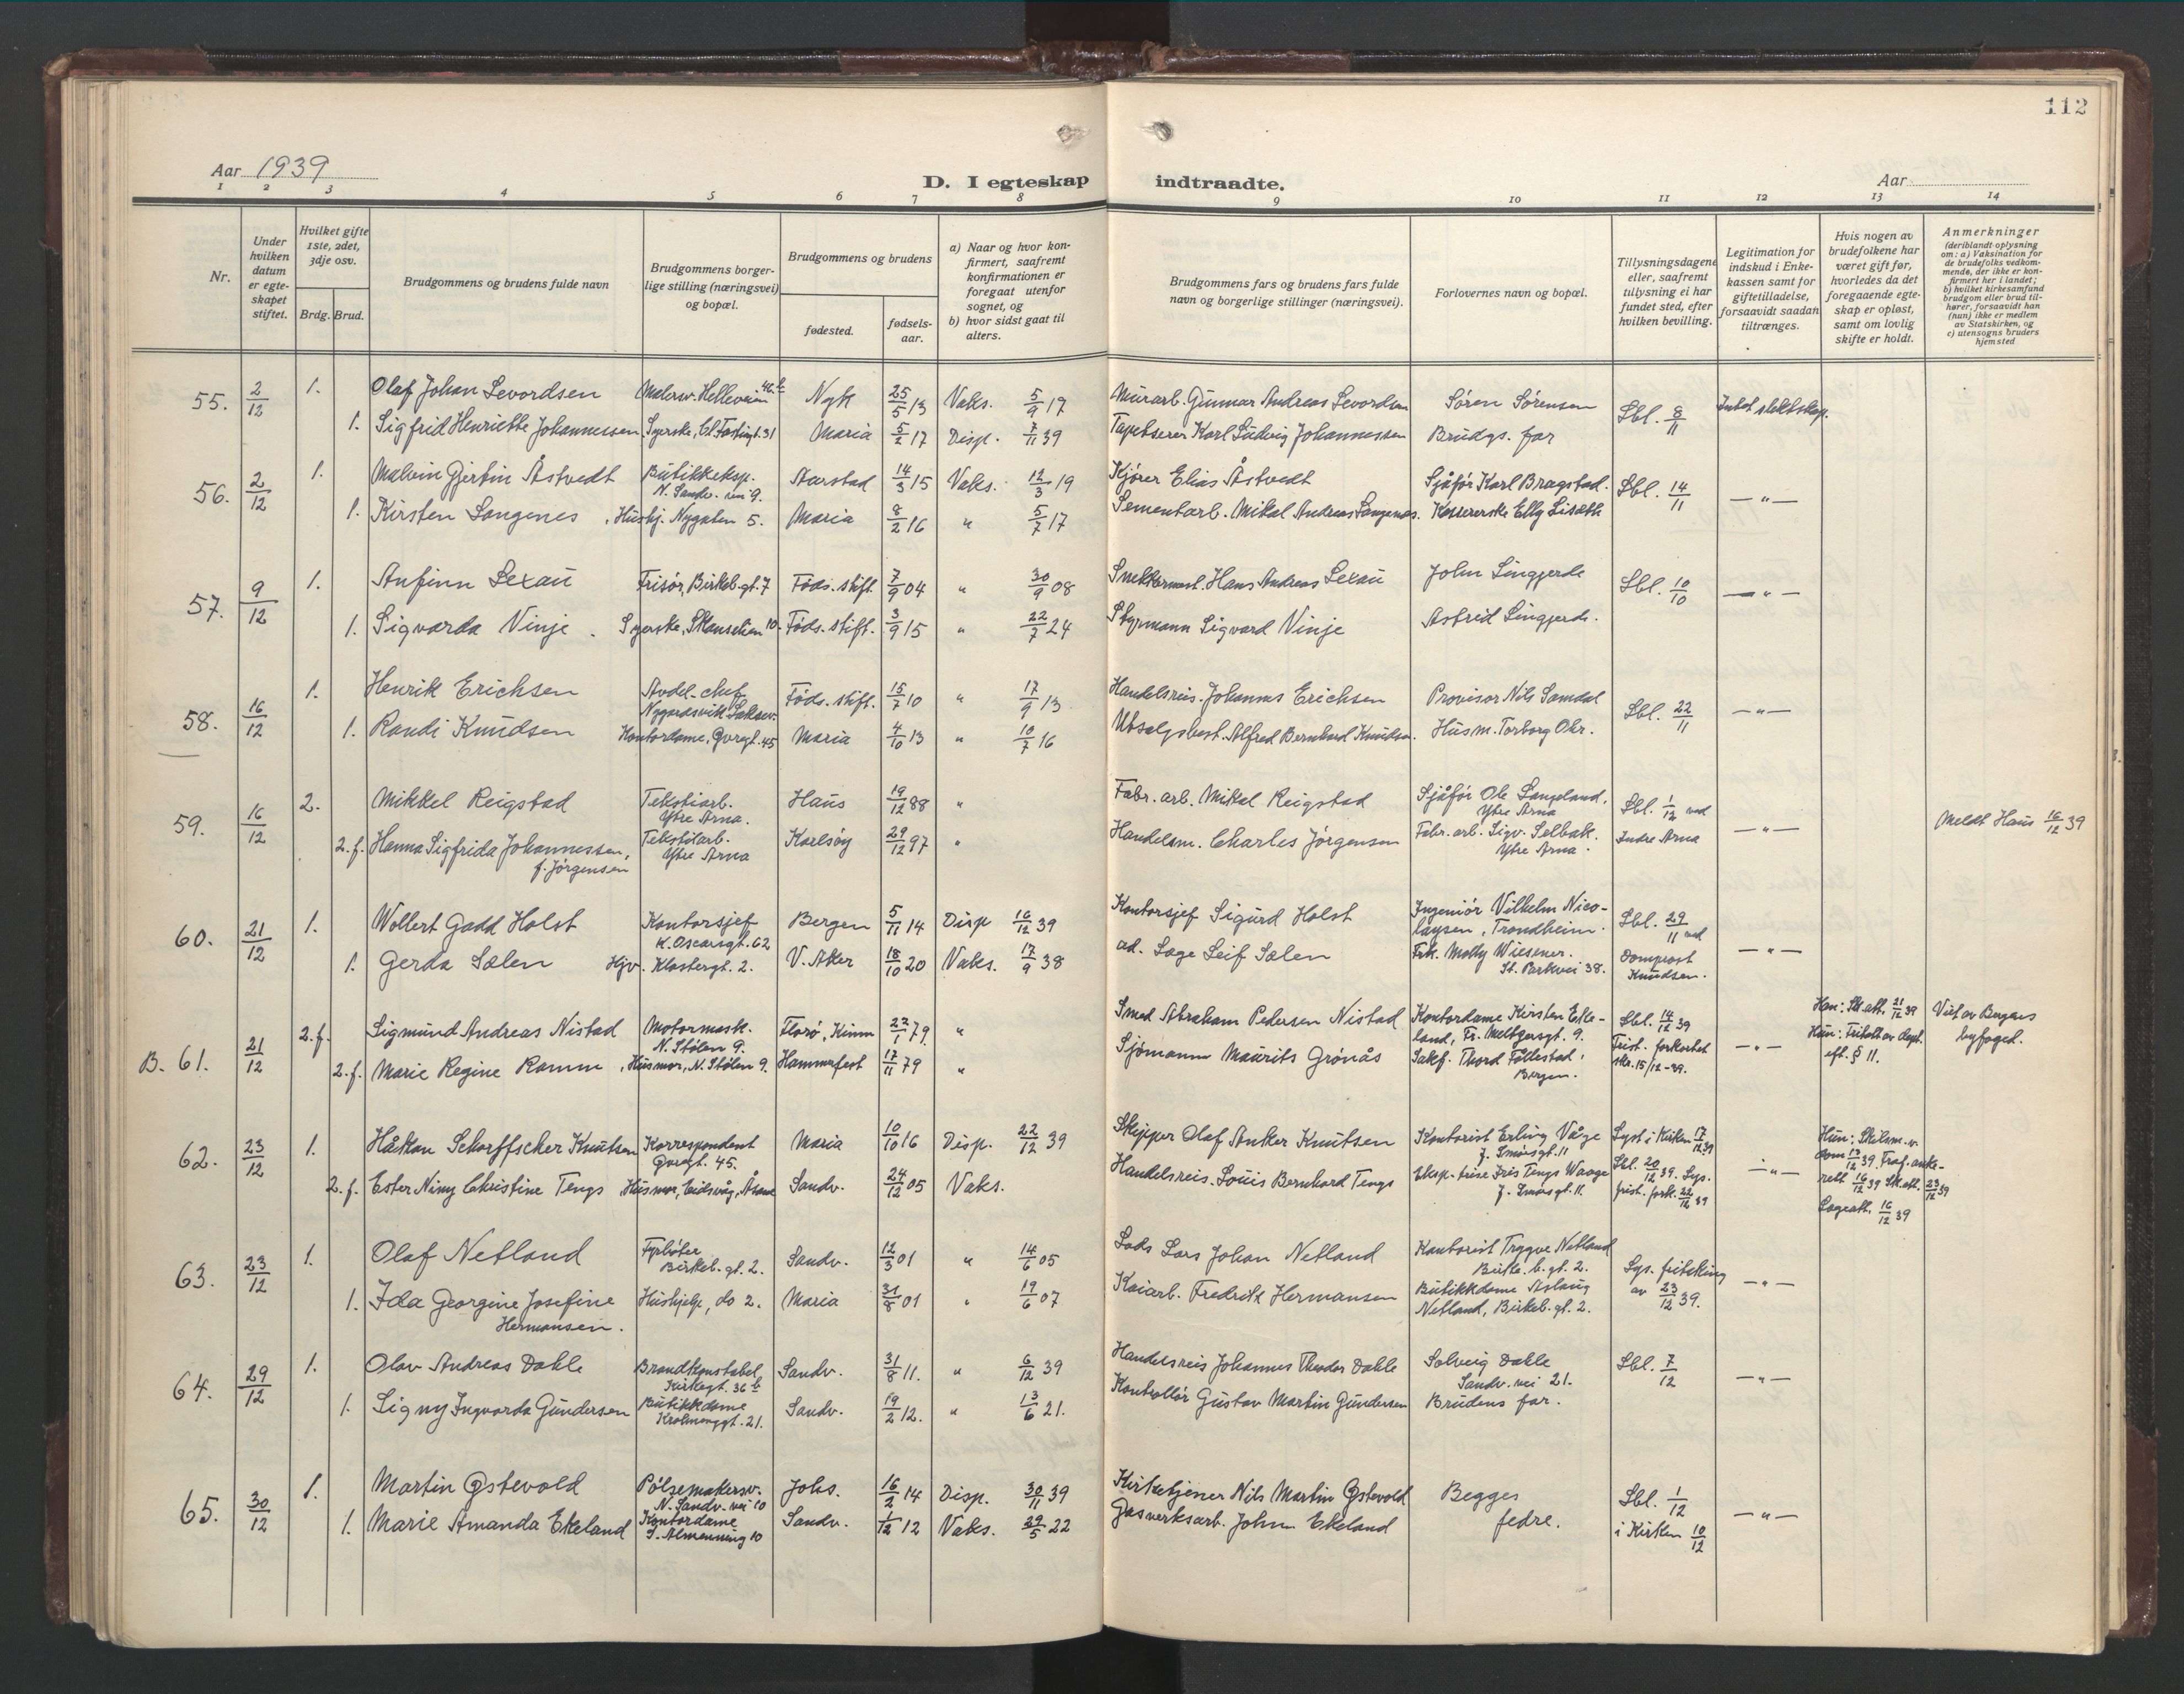 112
Aar 1939
D. I egteskap indtraadte.
Aar
1 2 3 4 5 6 7 8 9 10 11 12 13 14
Nr.
Under hvilken datum er egte-skapet stiftet.
Hvilket gifte 1ste, 2det, 3dje osv.
Brdg. Brud.
Brudgommens og brudens fulde navn
Brudgommens borger-lige stilling (næringsvei) og bopæl.
Brudgommens og brudens
fødested.
fødsels-aar.
a) Naar og hvor kon-firmert, saafremt konfirmationen er foregaat utenfor sognet, og
b) hvor sidst gaat til alters.
Brudgommens fars og brudens fars fulde navn og borgerlige stillinger (næringsvei).
Forlovernes navn og bopæl.
Tillysningsdagene eller, saafremt tillysning ei har fundet sted, efter hvilken bevilling.
Legitimation for indskud i Enke-kassen samt for giftetilladelse, forsaavidt saadan tiltrænges.
Hvis nogen av brudefolkene har været gift før, hvorledes da det foregaaende egte-skap er opløst, samt om lovlig skifte er holdt.
Anmerkninger
(deriblandt oplysning om: a) Vaksination for de brudefolks vedkom-mende, der ikke er kon-firmert her i landet; b) hvilket kirkesamfund brudgom eller brud til-hører, forsaavidt han (hun) ikke er medlem av Statskirken, og c) utensogns bruders hjemsted
55. 2/12 1. Olaf Johan Levordsen Malersv. Helleveien 46 b Nyk 25/5 13 Vaks. 5/9 17 Murarb. Gunnar Andreas Levordsen Søren Sørensen Lbl. 8/11 Intet slektskap.
1. Sigfrid Henriette Johannessen Syerske, Cl. Fastingt. 31 Maria 5/2 17 Disp. 7/11 39 Tapetserer Karl Ludvig Johannessen Brudgs. far
56. 2/12 1. Malvin Gjertin Åstvedt Butikkeksp. N. Sandv. vei 9. Aarstad 14/3 15 Vaks. 12/3 19 Kjører Elias Åstvedt Sjåfør Karl Bragstad. Lbl. 14/11 — " —
1. Kirsten Langenes Hushj. Nygaten 5. Maria 8/2 16 " 5/7 17 Sementarb. Mikal Andreas Langenes. Kassererske Elly Liseth
57. 9/12 1. Anfinn Lexau Frisør, Birkeb. gt. 7 Føds. stift. 7/9 04 " 30/9 08 Snekkermest. Hans Andreas Lexau John Lingjerde Lbl. 10/10 — " —
1. Sigvarda Vinje Syerske, Skanselien 10. Føds. stift. 3/9 15 " 22/7 24 Styrmann Sigvard Vinje Astrid Lingjerde.
58. 16/12 1. Henrik Erichsen Avdel. chef Nygardsvik Laksev. Føds. stift. 15/7 10 " 17/9 13 Handelsreis. Johannes Erichsen Provisor Nils Samdal Lbl. 22/11 — " —
1. Randi Knudsen Kontordame, Øvregt. 45 Maria 4/10 13 " 10/7 16 Utsalgsbest. Alfred Bernhard Knudsen. Husm. Torborg Ohr.
59. 16/12 2. Mikkel Reigstad Tekstilarb. Ytre Arna. Haus 19/12 88 " Fabr. arb. Mikal Reigstad Sjåfør Ole Langeland, Ytre Arna Lbl. 1/12 ved — " — Meldt Haus 16/12 39
2. f. Hanna Sigfrida Johannessen, f. Jørgensen Tekstilarb. Ytre Arna Karlsøy 29/12 97 " Handelsm. Charles Jørgensen Fabr. arb. Sigv. Selbak. Ytre Arna. Indre Arna
60. 21/12 1. Wollert Gadd Holst Kontorsjef K. Oscarsgt. 62 Bergen 5/11 14 Disp 16/12 39 Kontorsjef Sigurd Holst Ingeniør Vilhelm Nico-laysen, Trondheim. Lbl. 29/11 ved — " —
1. Gerda Salen Hgv. Klostergt. 2. V. Aker 18/10 20 Vaks. 17/9 38 ad. Lage Leif Salen Frk. Molly Wiesener. St. Parkvei 38. Domprost Knudsen.
B. 61. 21/12 2. f. Sigmund Andreas Nistad Motormask. N. Stølen 9. Florø, Kinn 22/1 79. " Smed Abraham Pedersen Nistad Kontordame Kirsten Eke-land, Fr. Meltzersgt. 9. Lbl. 14/12 39 — " — Han: Sk. att. 21/12 39 Viet av Bergens byfoged.
2. f. Marie Regine Ramm Husmor, N. Stølen 9. Hammerfest 17/11 79 " Sjømann Maurits Grønås Sakf. Thord Tollestad, Bergen. Frist. forkortet ske. 15/12-39. Hun: Fritatt av dept. eft. § 11.
62. 23/12 1. Håkon Scharffscher Knutsen Korrespondent Øvregt. 45. Maria 10/10 16 Disp. 22/12 39 Skipper Olaf Anker Knutsen Kontorist Erling Våge J. Smørsgt. 11 Lyst i Kirken 17/12 39 — " — Hun: Skilsm. v. dom 13/12 39. Fraf. anke-rett 16/12 39 Sk. att. 23/12 39
2. f. Ester Nimy Christine Tengs Husmor, Eidsvåg, Åsane Sandv. 24/12 05 Vaks. Handelsreis. Louis Bernhard Tengs Eksp. trise Iris Tengs Waage J. Smørsgt. 11. Lbl. 20/12 39. Lys. frist. fork. 22/12 39 Lageatt. 16/12 39
63. 23/12 1. Olaf Netland Fyrbøter Birkeb. gt. 2. Sandv. 12/3 01 " 14/6 05 Lods Lars Johan Netland Kontorist Trygve Netland Birke. b. gt. 2. Lys. fritaking av 23/12 39. — " —
1. Ida Georgine Josefine Hermansen. Hushjelp, do 2. Maria 31/8 01 " 19/6 07 Kaiarb. Fredrik Hermansen Butikkdame Aslaug Netland, Birkeb. gt. 2.
64. 29/12 1. Olav Andreas Dahle Brandkonstabel Kirkegt. 36 b Sandv. 31/8 11. " 6/12 39 Handelsreis Johannes Theodor Dahle Solveig Dahle Sandv. vei 21. Lbl. 7/12 — " —
1. Signy Ingvarda Gundersen Butikkdame Krohnenggt. 21. Sandv. 19/2 12. " 13/6 21. Kontrollør Gustav Martin Gundersen Brudens far.
65. 30/12 1. Martin Østevold Pølsemakersv. N. Sandv. vei 10 Johs. 16/2 14 Disp. 30/11 39 Kirketjener Nils Martin Østevold Begges fedre. Lbl. 1/12 i Kirken 10/12 — " —
1. Marie Amanda Ekeland Kontordame S. Almenning 10 Sandv. 1/12 12 Vaks. 29/5 22 Gasverksarb. John Ekeland